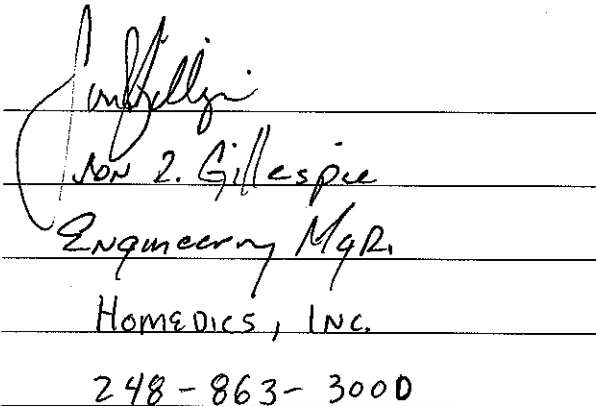 Jon L. Gillespie
Engineering Mgr.
HOMEDICS, INC.
248-863-3000